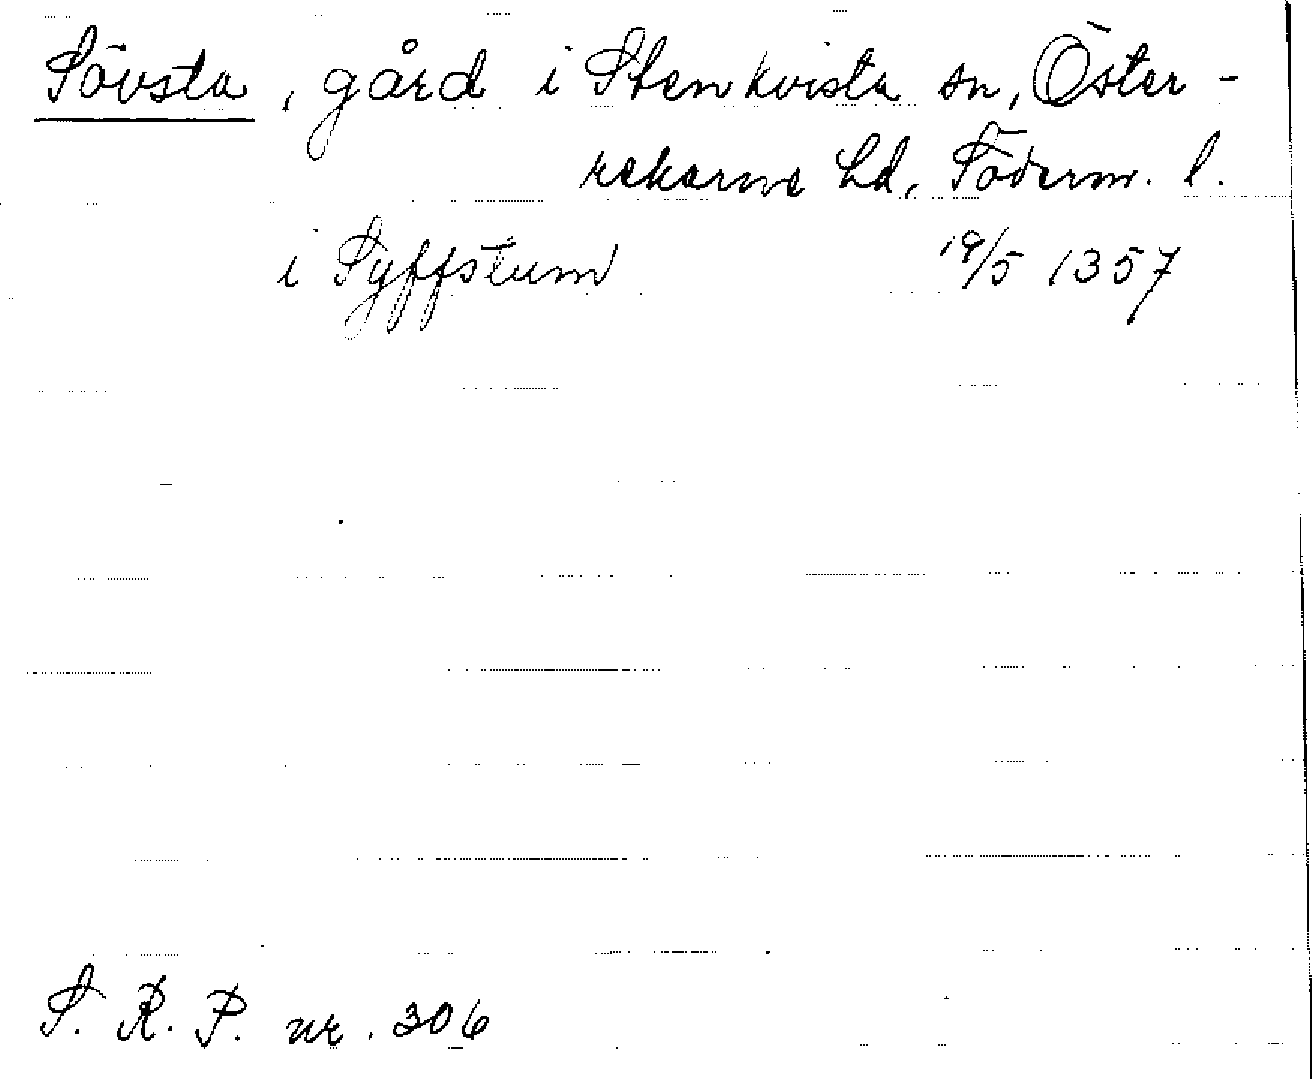 Sövsta, gård i Stenkvista sn, Öster-
rekarne hd, Söderm. l.
i Syffstum 19/5 1357
S. R. P. nr. 306